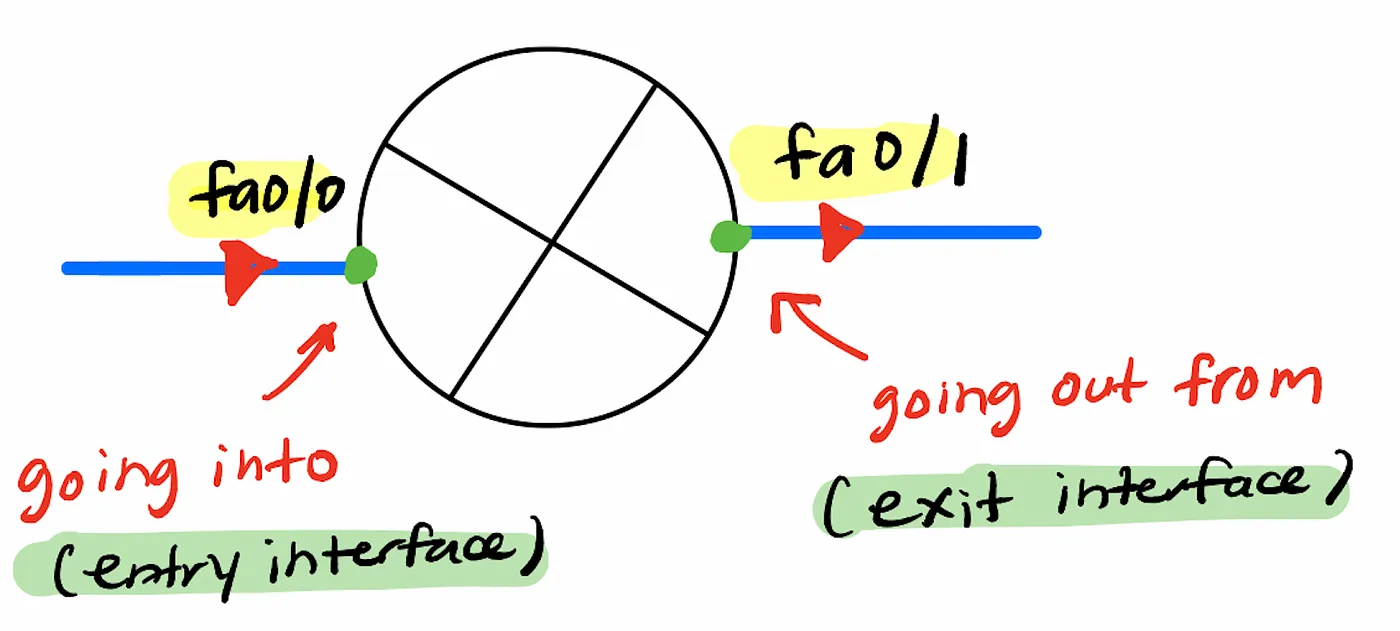 fa0/0
fa0/1
going into
(entry interface)
going out from
(exit interface)